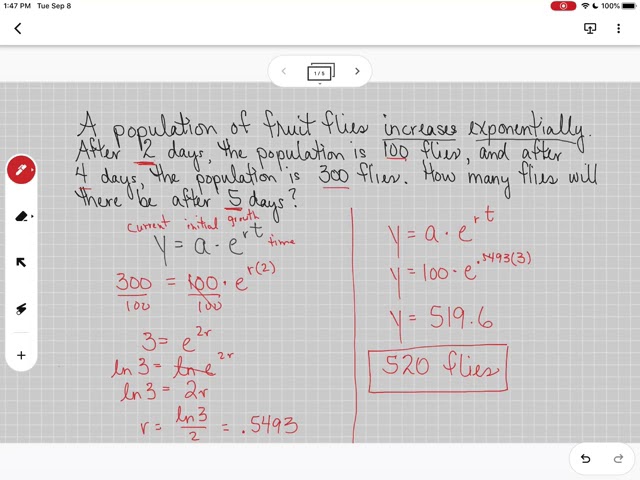 1:47 PM Tue Sep 8
100%
1/5
A population of fruit flies increases exponentially.
After 2 days, the population is 100 flies, and after
4 days, the population is 300 flies. How many flies will
there be after 5 days?
current initial growth
y = a · e^rt time
300 = 100 · e^r(2)
100 100
3 = e^2r
ln 3 = ln e^2r
ln 3 = 2r
r = ln 3 / 2 = .5493
y = a · e^rt
y = 100 · e^.5493(3)
y = 519.6
520 flies